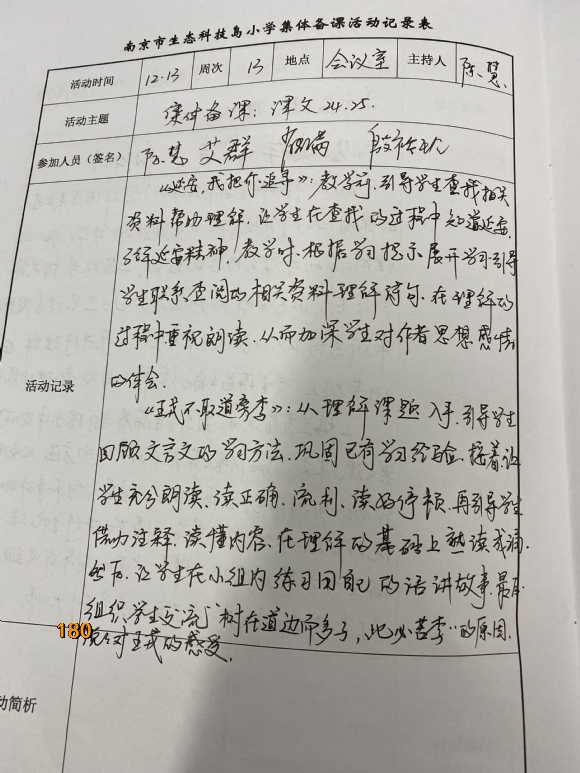 南京市生态科技岛小学集体备课活动记录表
活动时间 12.13 周次 13 地点 会议室 主持人 陈慧
活动主题 集体备课：课文24.25.
参加人员（签名） 陈慧 艾群
《延安，我把你追寻》：教学前，引导学生查找相关
资料帮助理解，让学生在查找的过程中知道延安，
了解延安精神，教学时，根据学习提示展开学习，引导
学生联系查阅的相关资料理解诗句，在理解的
过程中重视朗读，从而加深学生对作者思想感情
的体会.
活动记录
《王戎不取道旁李》：从理解课题入手，引导学生
回顾文言文的学习方法，巩固已有学习经验，接着，让
学生充分朗读，读正确、流利、读好停顿，再引导学生
借助注释，读懂内容，在理解的基础上熟读成诵.
然后，让学生在小组内练习用自己的话讲故事，最后
组织学生交流"树在道边而多子，此必苦李"的原因.
对王戎的感受.
180
动简析